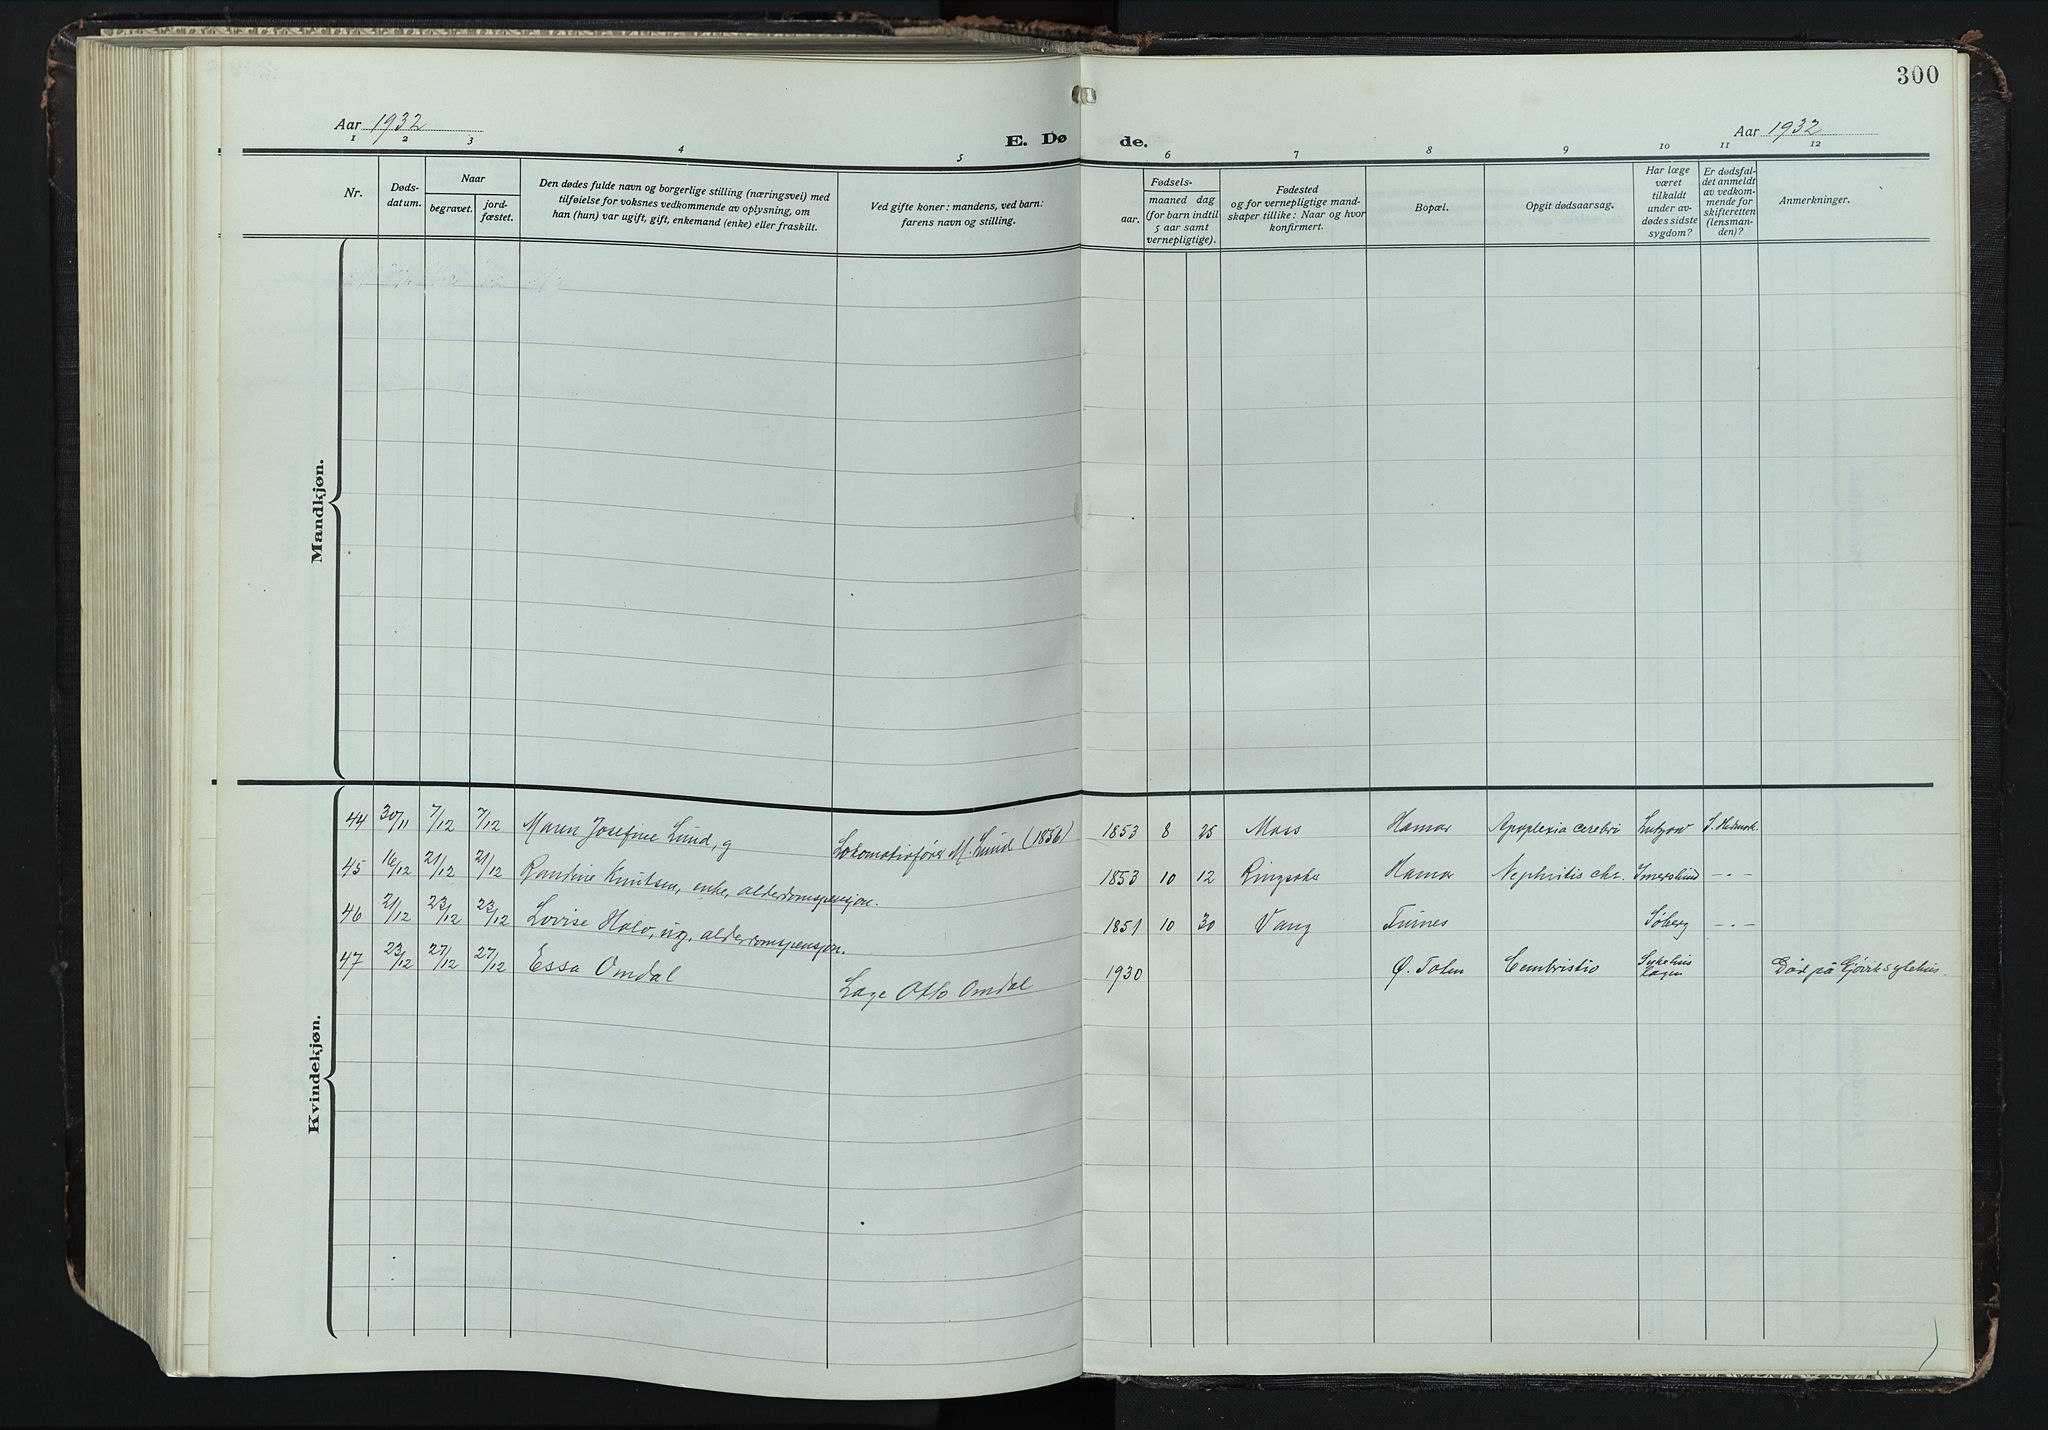 300
Aar 1932
E. Dø
de.
Aar 1932
1 2 3 4 5 6 7 8 9 10 11 12
Nr.
Døds-
datum.
Naar
begravet.
jord-
fæstet.
Den dødes fulde navn og borgerlige stilling (næringsvei) med
tilføielse for voksnes vedkommende av oplysning, om
han (hun) var ugift, gift, enkemand (enke) eller fraskilt.
Ved gifte koner: mandens, ved barn:
farens navn og stilling.
Fødsels-
aar.
maaned dag
(for barn indtil
5 aar samt
vernepligtige).
Fødested
og for vernepligtige mand-
skaper tillike: Naar og hvor
konfirmert.
Bopæl.
Opgit dødsaarsag.
Har læge
været
tilkaldt
under av-
dødes sidste
sygdom?
Er dødsfal-
det anmeldt
av vedkom-
mende for
skifteretten
(lensman-
den)?
Anmerkninger.
Mandkjøn.
Kvindekjøn.
44 30/11 7/12 7/12 Maren Josefine Lund, g Lokomotivfører M. Lund (1856) 1853 8 25 Moss Hamar Apoplexia cerebri Lutzow S. Hedmark.
45 16/12 21/12 21/12 Randine Knutsen, enke, alderdomspensjon. 1853 10 12 Ringsaker Hamar Nephritis chr. Imerslund -"-
46 21/12 23/12 23/12 Lovise Holo, ug. alderdomspensjon. 1851 10 30 Vang Furnes Søberg -"-
47 23/12 27/12 27/12 Essa Omdal Læge Otto Omdal 1930 Ø. Toten Combustio Sykehus
lægen Død på Gjøvik sykehus.